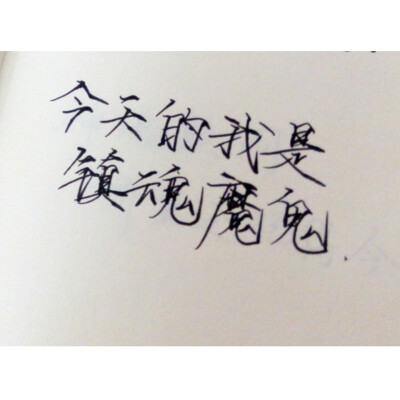 今天的我是
镇魂魔鬼.